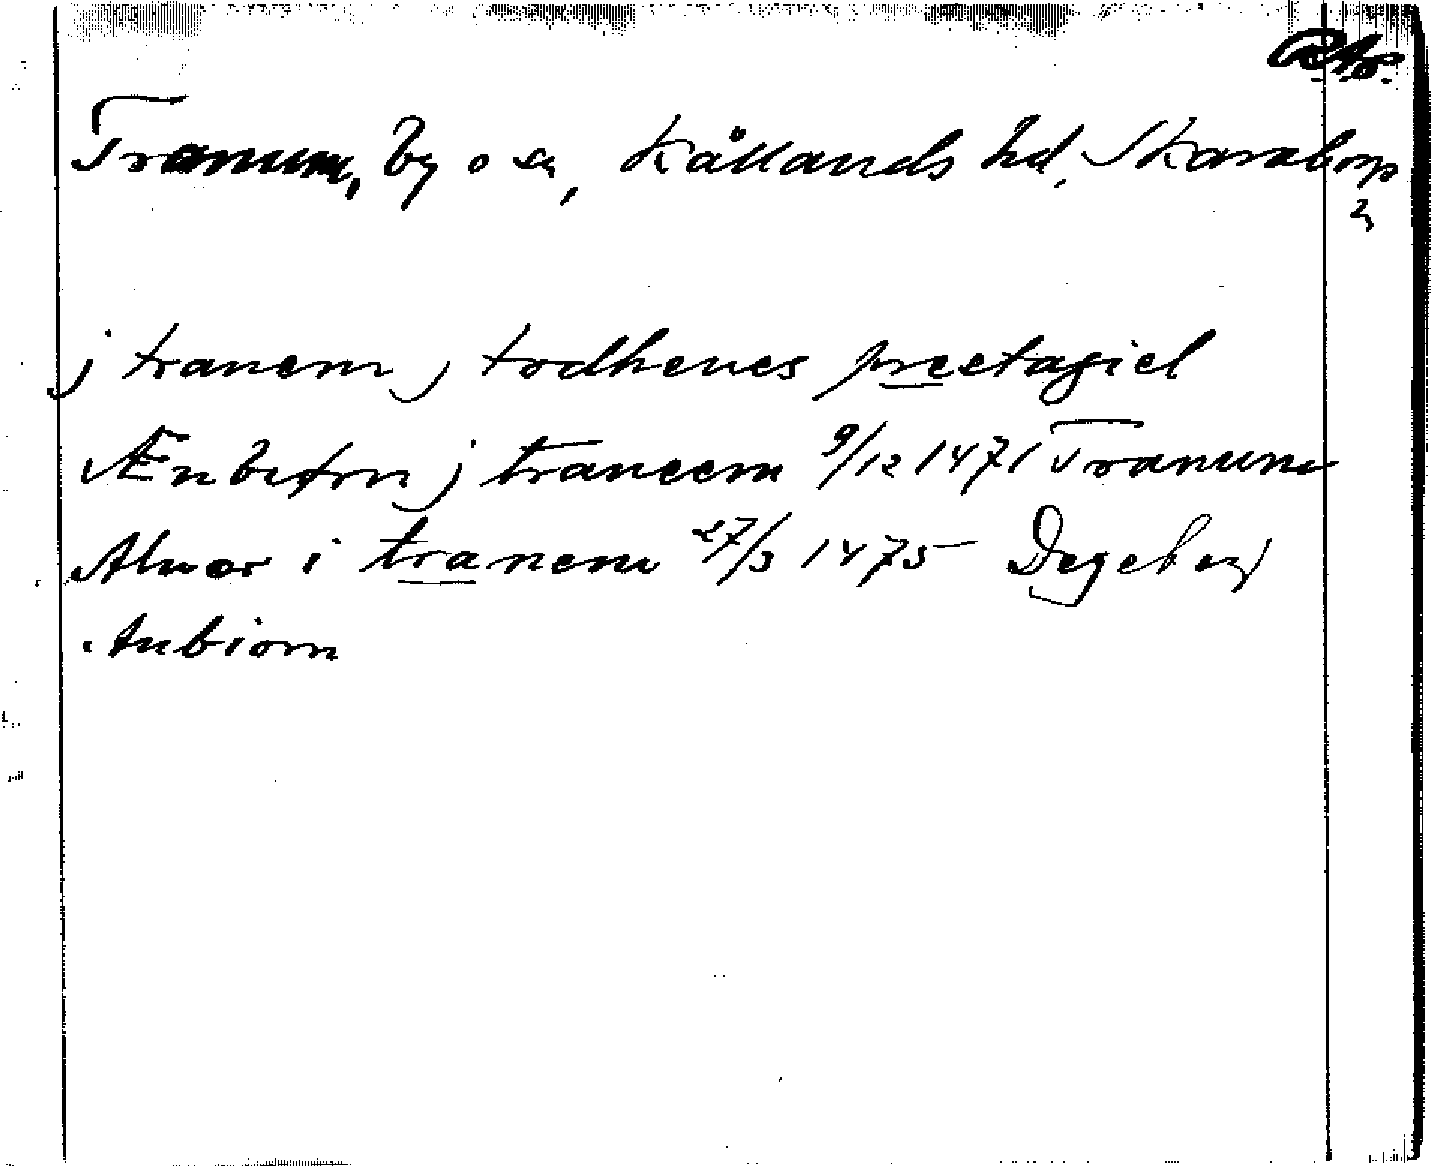 Tranum, by o sn, Kållands hd, Skaraborgs
j tranem j todhenes prestagiel
Ænbiörn j traneem 9/12 1471 Tranum
Alwar i tranem 27/3 1475 Degeberg
Anbiorn